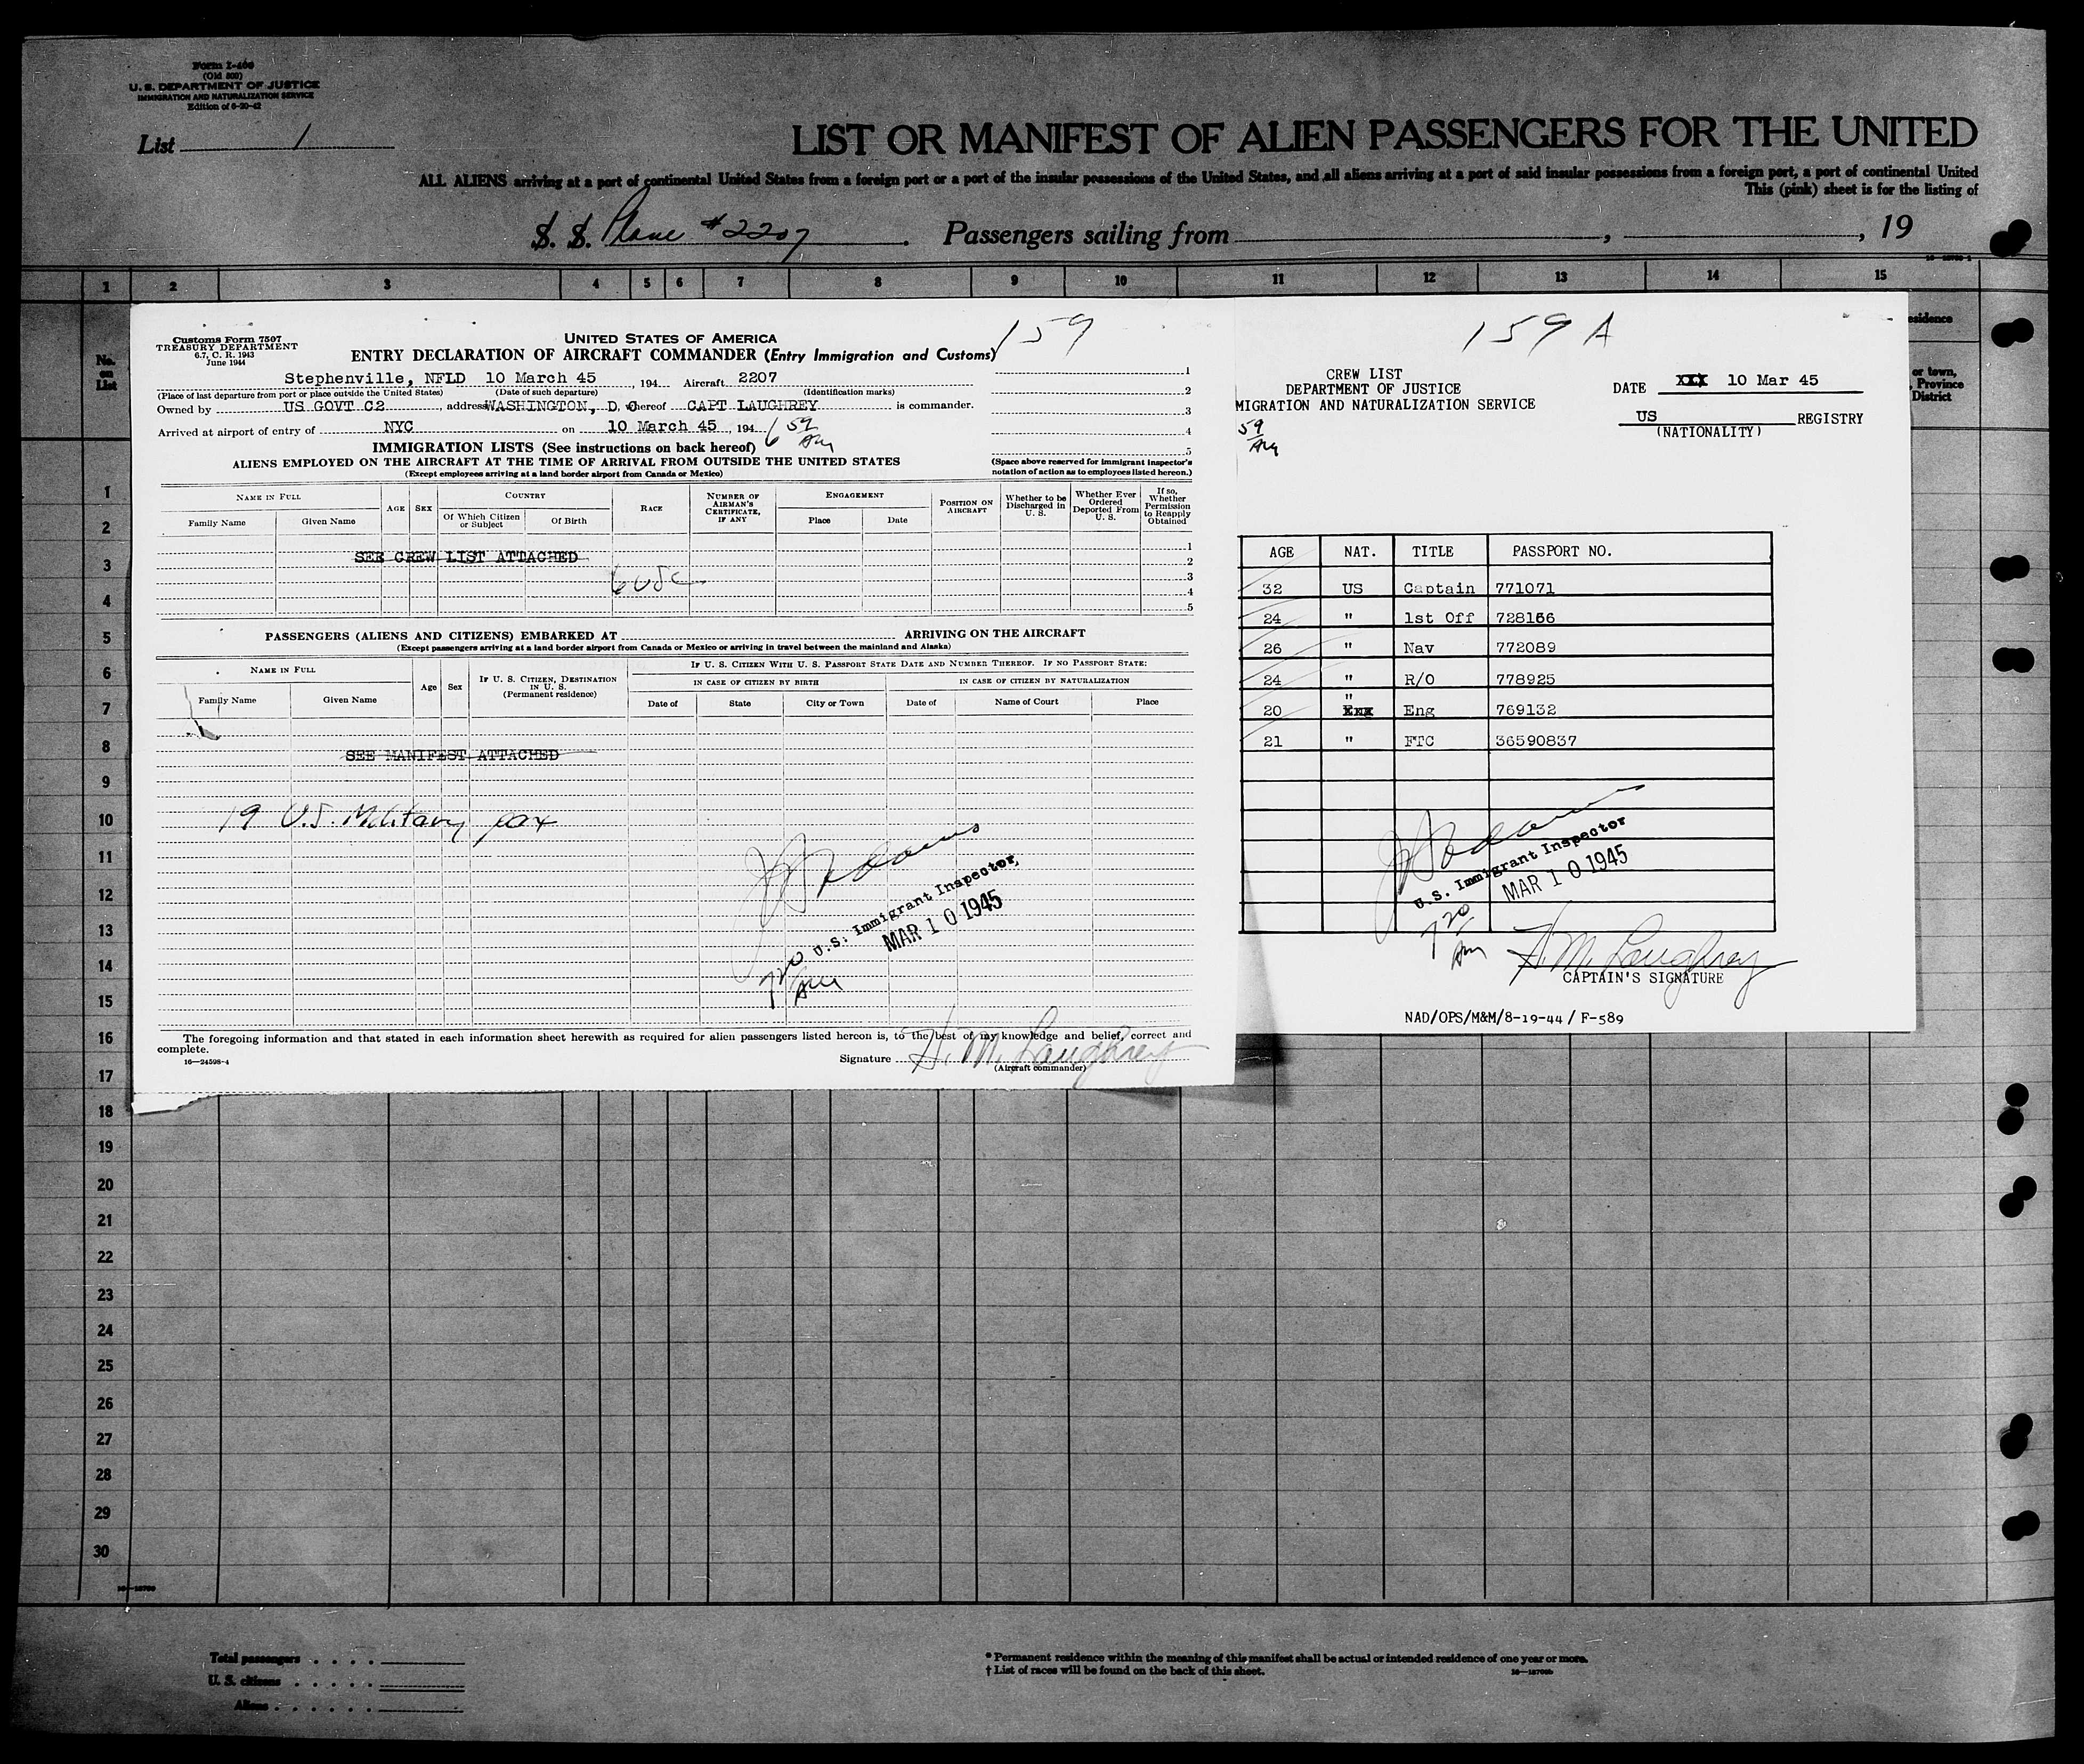 Form I-466
(Old 500)
U. S. DEPARTMENT OF JUSTICE
IMMIGRATION AND NATURALIZATION SERVICE
Edition of 6-20-42
List 1
LIST OR MANIFEST OF ALIEN PASSENGERS FOR THE UNITED
ALL ALIENS arriving at a port of continental United States from a foreign port or a port of the insular possessions of the United States, and all aliens arriving at a port of said insular possessions from a foreign port, a port of continental United
This (pink) sheet is for the listing of
S. S. Plane #2207. Passengers sailing from , , 19
1 2 3 4 5 6 7 8 9 10 11 12 13 14 15
No. on List
esidence
or town, Province District
Customs Form 7507
TREASURY DEPARTMENT
6.7, C. R. 1943
June 1944
UNITED STATES OF AMERICA
159
ENTRY DECLARATION OF AIRCRAFT COMMANDER (Entry Immigration and Customs)
Stephenville, NFLD 10 March 45, 194 Aircraft 2207
(Place of last departure from port or place outside the United States) (Date of such departure) (Identification marks)
Owned by US GOVT C2, address WASHINGTON, D, C whereof CAPT LAUGHREY is commander.
Arrived at airport of entry of NYC on 10 March 45, 194 6 59 AM
1
2
3
4
5
IMMIGRATION LISTS (See instructions on back hereof)
ALIENS EMPLOYED ON THE AIRCRAFT AT THE TIME OF ARRIVAL FROM OUTSIDE THE UNITED STATES
(Except employees arriving at a land border airport from Canada or Mexico)
(Space above reserved for immigrant inspector's notation of action as to employees listed hereon.)
NAME IN FULL
Family Name Given Name
AGE SEX
COUNTRY
Of Which Citizen or Subject Of Birth
RACE
NUMBER OF AIRMAN'S CERTIFICATE, IF ANY
ENGAGEMENT
Place Date
POSITION ON AIRCRAFT
Whether to be Discharged in U. S.
Whether Ever Ordered Deported From U. S.
If so, Whether Permission to Reapply Obtained
SEE CREW LIST ATTACHED
6 USC
1
2
3
4
5
PASSENGERS (ALIENS AND CITIZENS) EMBARKED AT ARRIVING ON THE AIRCRAFT
(Except passengers arriving at a land border airport from Canada or Mexico or arriving in travel between the mainland and Alaska)
NAME IN FULL
Family Name Given Name
Age Sex
IF U. S. CITIZEN, DESTINATION IN U. S. (Permanent residence)
IF U. S. CITIZEN WITH U. S. PASSPORT STATE DATE AND NUMBER THEREOF. IF NO PASSPORT STATE:
IN CASE OF CITIZEN BY BIRTH IN CASE OF CITIZEN BY NATURALIZATION
Date of State City or Town Date of Name of Court Place
SEE MANIFEST ATTACHED
19 U.S. Military pax
U.S. Immigrant Inspector
MAR 10 1945
7 20 AM
The foregoing information and that stated in each information sheet herewith as required for alien passengers listed hereon is, to the best of my knowledge and belief, correct and
complete.
16—24598-4
Signature H. M. Laughrey
(Aircraft commander)
159 A
CREW LIST
DEPARTMENT OF JUSTICE
MIGRATION AND NATURALIZATION SERVICE
59 AM
DATE XXX 10 Mar 45
US REGISTRY
(NATIONALITY)
AGE NAT. TITLE PASSPORT NO.
32 US Captain 771071
24 " 1st Off 728156
26 " Nav 772089
24 " R/O 778925
20 " Eng 769132
21 " FTC 36590837
U.S. Immigrant Inspector
MAR 10 1945
7 20 AM
H. M. Laughrey
CAPTAIN'S SIGNATURE
NAD/OPS/M&M/8-19-44 / F-589
1
2
3
4
5
6
7
8
9
10
11
12
13
14
15
16
17
18
19
20
21
22
23
24
25
26
27
28
29
30
Total passengers
U. S. citizens
Aliens
* Permanent residence within the meaning of this manifest shall be actual or intended residence of one year or more.
† List of races will be found on the back of this sheet.